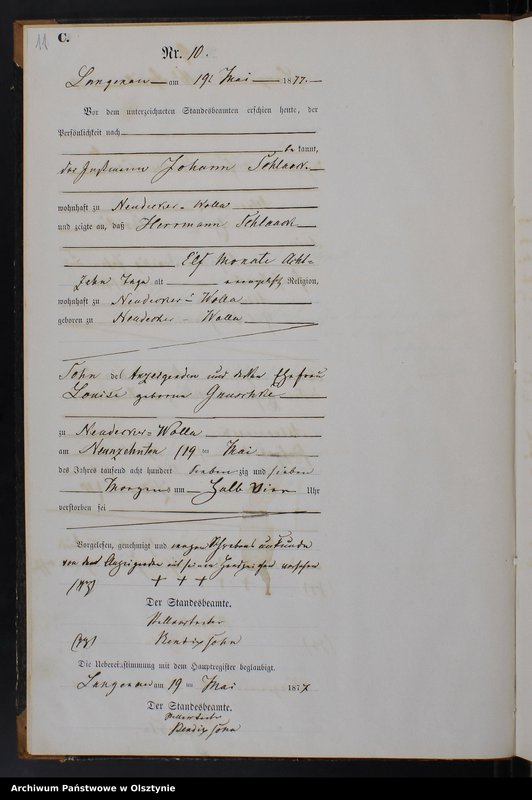 11 C.
Nr. 10.
Langenau am 19. Mai 1877.
Vor dem unterzeichneten Standesbeamten erschien heute, der
Persönlichkeit nach
be kannt,
der Johann Schlaack
wohnhaft zu Neudecker-Wolla
und zeigte an, daß Herrmann Schlaack
Elf Monate Acht-
zehn Tage alt evangelisch Religion,
wohnhaft zu Neudecker-Wolla
geboren zu Neudecker-Wolla
Sohn des Anzeigenden und dessen Ehefrau
Louise geborne
zu Neudecker-Wolla
am Neunzehnten /19 ten Mai
des Jahres tausend acht hundert sieben zig und sieben
Morgens um Halb Vier Uhr
verstorben sei
Vorgelesen, genehmigt und wegen Schreibens unkunde
von dem Anzeigenden mit seinem Handzeichen versehen
+ + +
Der Standesbeamte.
Bendixsohn
Die Uebereinstimmung mit dem Hauptregister beglaubigt.
Langenau am 19 ten Mai 1877
Der Standesbeamte.
Bendixsohn
Archiwum Państwowe w Olsztynie